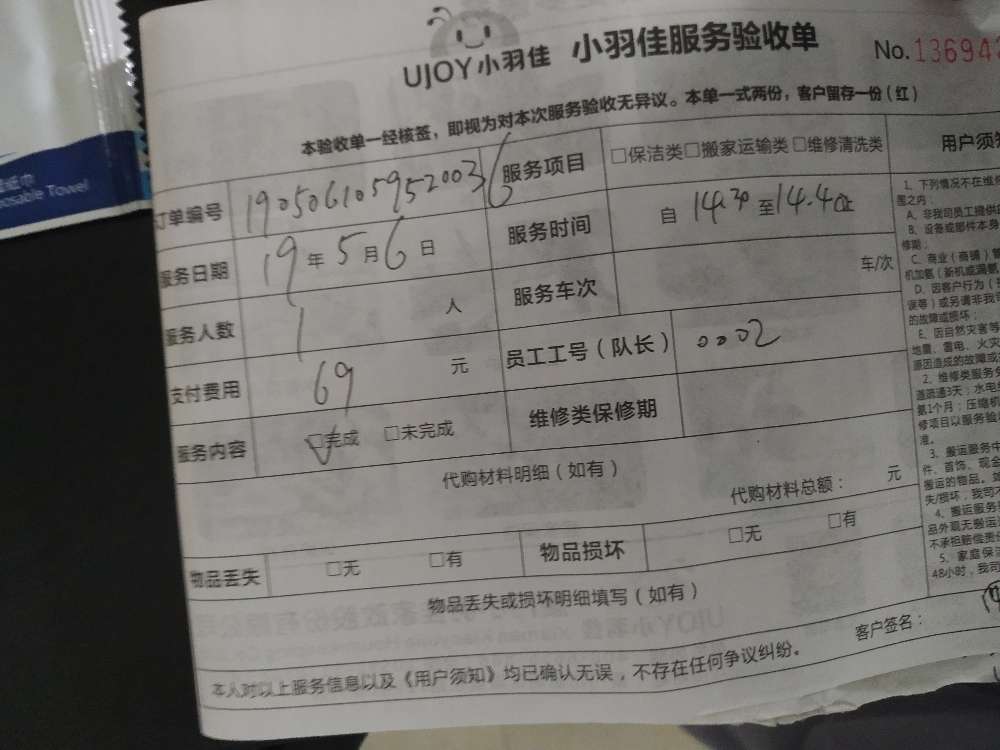 UJOY小羽佳 小羽佳服务验收单 No.13694
本验收单一经核签，即视为对本次服务验收无异议。本单一式两份，客户留存一份（红）
订单编号 190506105952003 6 服务项目 □保洁类□搬家运输类□维修清洗类 用户须
服务日期 19年5月6日 服务时间 自14.30至14.40止
服务人数 1 人 服务车次 车/次
支付费用 69 元 员工工号（队长） 0002
服务内容 □完成 □未完成 维修类保修期
代购材料明细（如有）
代购材料总额： 元
物品丢失 □无 □有 物品损坏 □无 □有
物品丢失或损坏明细填写（如有）
客户签名：
本人对以上服务信息以及《用户须知》均已确认无误，不存在任何争议纠纷。
1、下列情况不在维
围之内：
A、非我司员工提供
B、设备或部件本身
修期；
C、商业（商铺）
机加氨（新机或漏氨
D、因客户行为（
误等）或另请非我
的故障或损坏；
E、因自然灾害等
地震、雷电、火灾
原因造成的故障或
2、维修类服务
道疏通3天；水电
氨1个月；压缩机
修项目以服务验
准。
3、搬运服务中
件、首饰、现金
搬运的物品。
失/损坏，我司
4、搬运服务
品外观无搬运
不承担赔偿责
5、家庭保
48小时，我司
纸巾
posable Towel